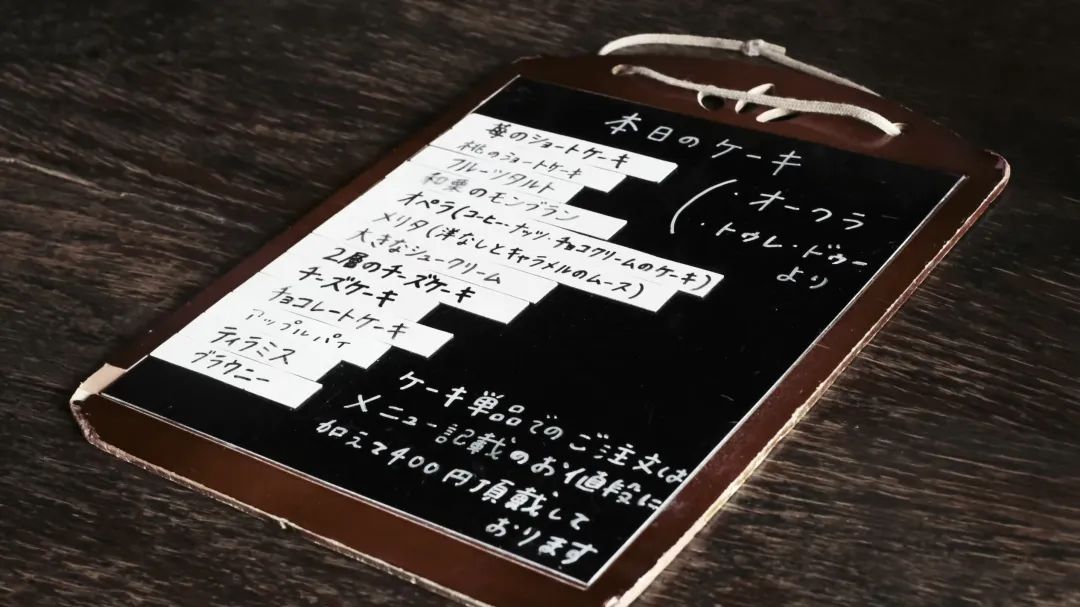 本日のケーキ
(・オークラ
・トゥレ・ドゥー
より
苺のショートケーキ
桃のショートケーキ
フルーツタルト
和栗のモンブラン
オペラ(コーヒー・ナッツ・チョコクリームのケーキ)
メリタ(洋なしとキャラメルのムース)
大きなシュークリーム
2層のチーズケーキ
チーズケーキ
チョコレートケーキ
アップルパイ
ティラミス
ブラウニー
ケーキ単品でのご注文は
メニュー記載のお値段に
加えて400円頂戴して
おります